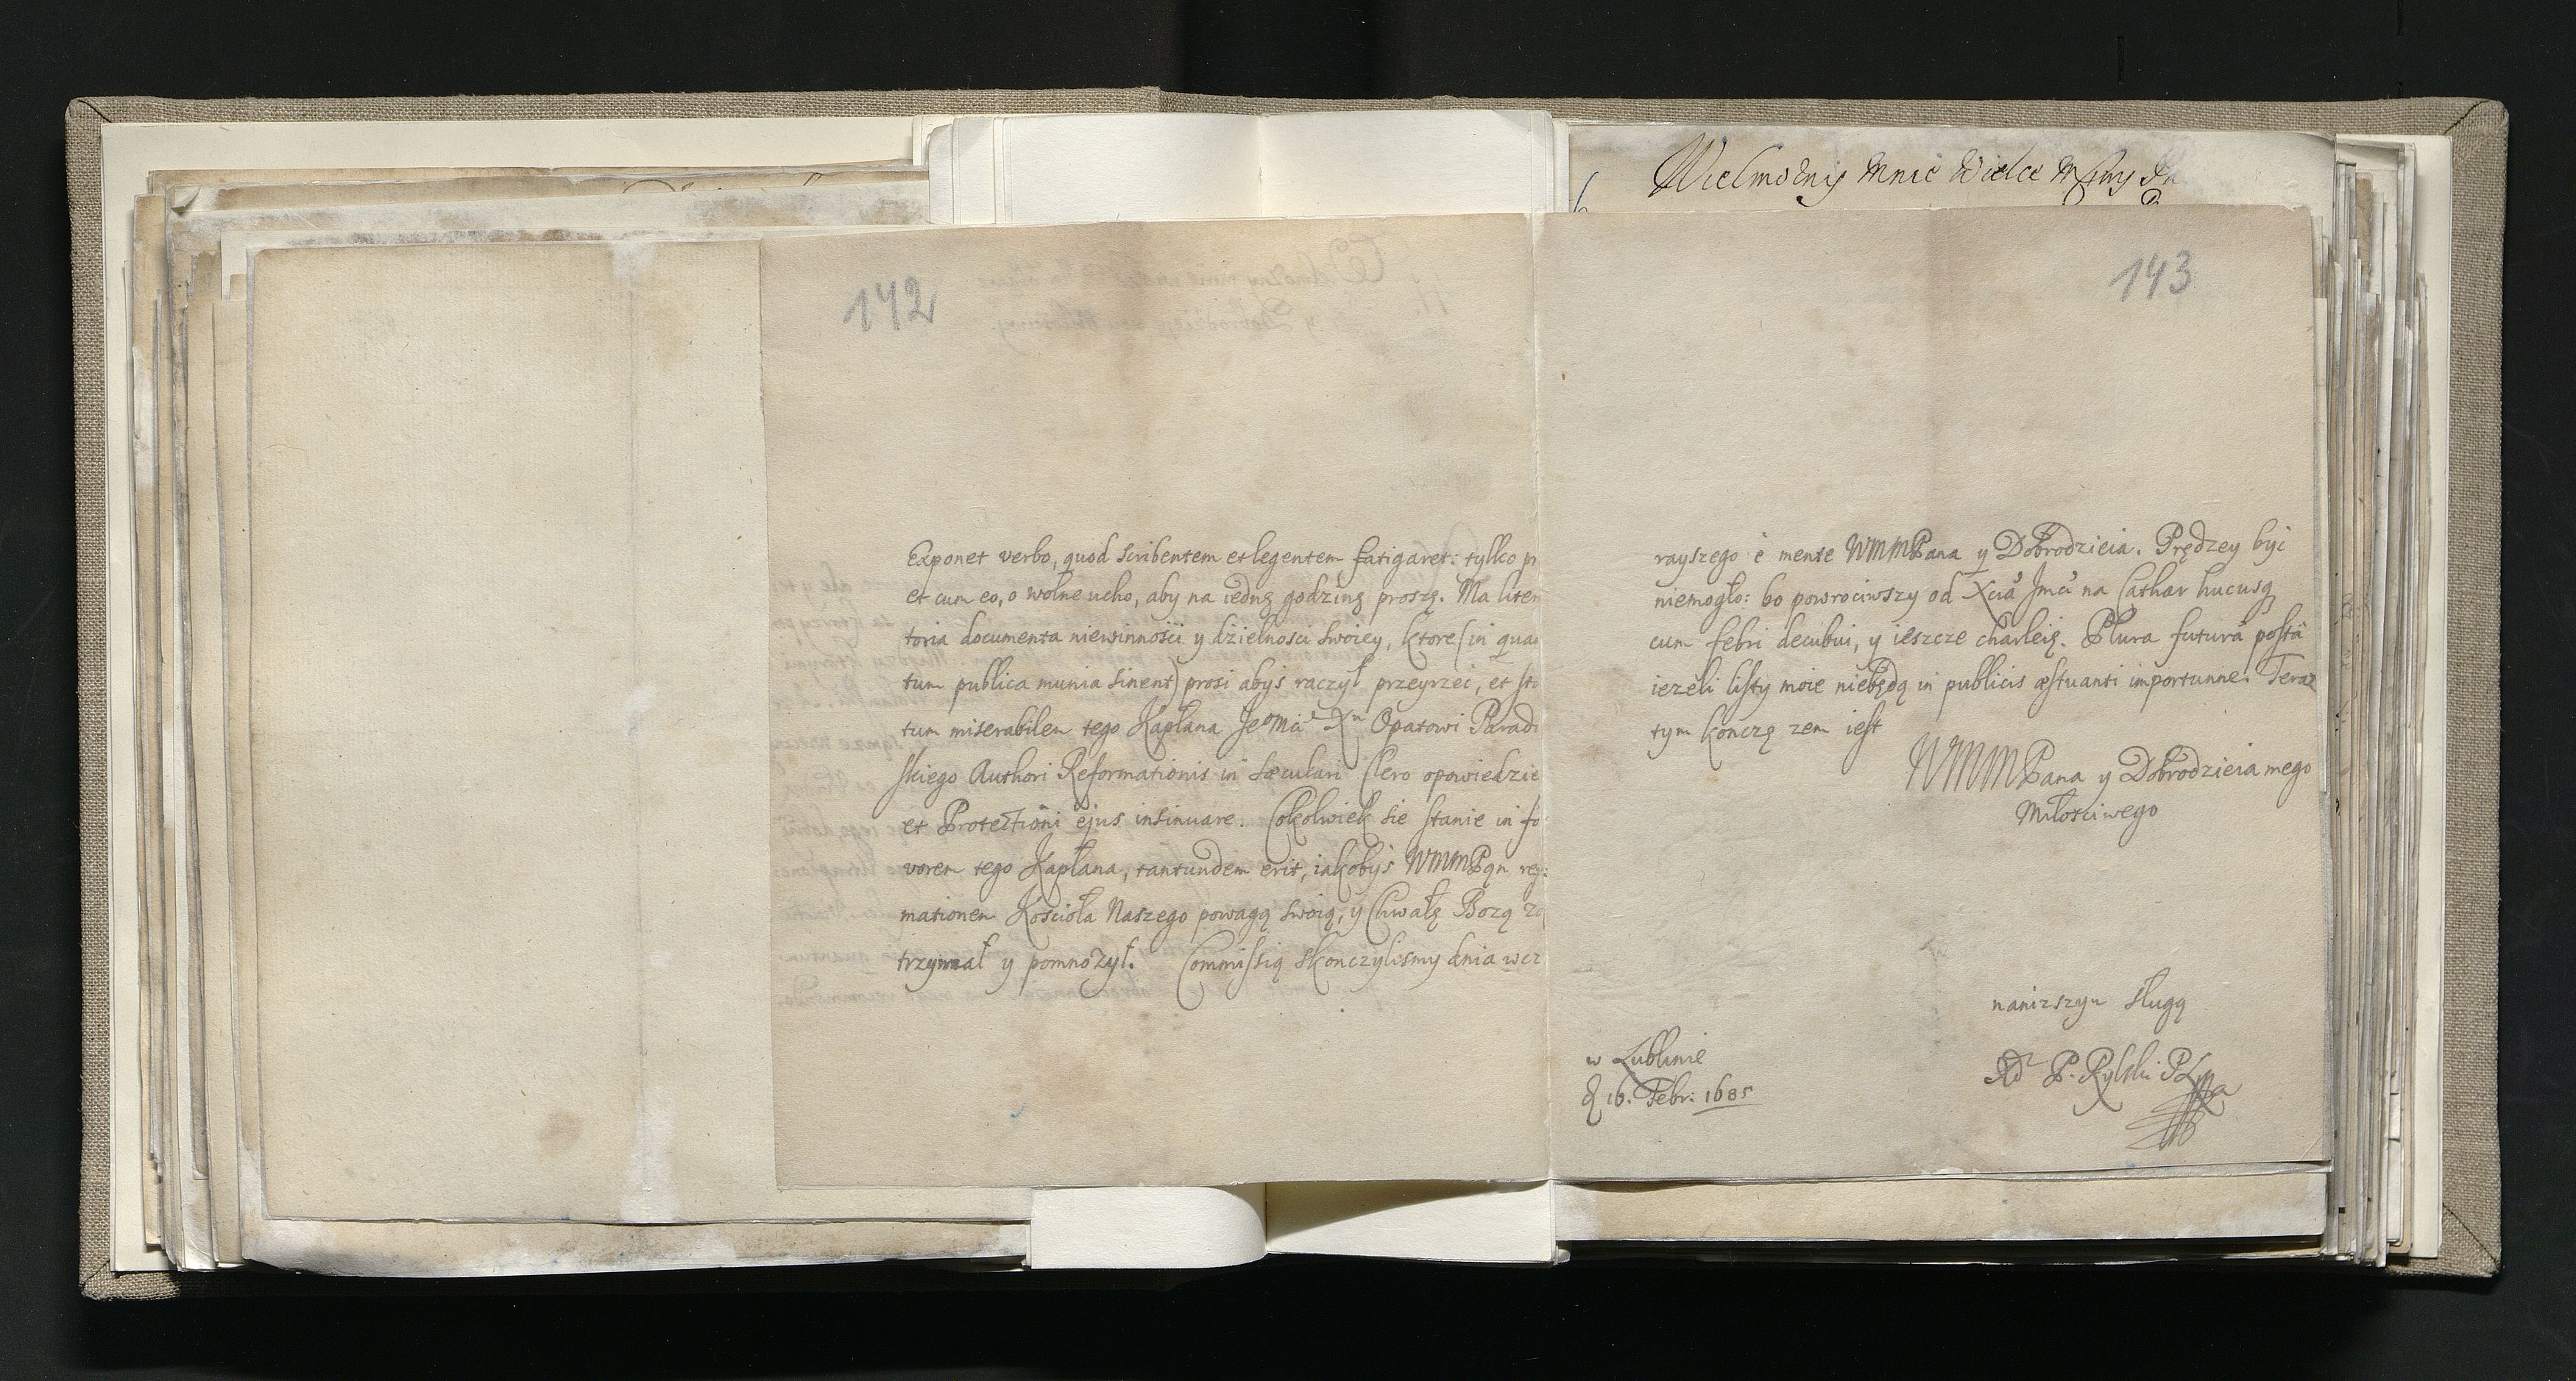 142
Exponet verbo, quod scribentem et legentem fatigaret: tylko
et cum eo, o wolne ucho, aby na iedną godzinę proszę. Ma liter
toria documenta niewinności y dzielności swoiey, ktore (in quan
tum publica munia sinent) prosi abyś raczył przeyrzeć, et sta
tum miserabilem tego Kapłana Opatowi Paradi
skiego Authori Reformationis in sæculari Clero opowiedzieć
et Protectioni ejus insinuare. Cokolwiek sie stanie in fa
vorem tego Kapłana, tantundem erit, iakobyś WMMPan
mationem Kościoła Naszego powagą swoią, y Chwałę Bozą
trzymał y pomnożył. Commissią skonczylismy dnia wcz
Wielmożny Mnie Wielce
143
rayszego è mente WMMPana y Dobrodzieia. Prędzey być
niemogło: bo powrociwszy od Xcia Jmci na Cathar hucusq
cum febri decubui, y ieszcze charleię. Plura futurâ postâ
iezeli listy moie niebędą in publicis æstuanti importunne. Teraz
tym kończę zem iest
WMMPana y Dobrodzieia mego
Miłosciwego
nanizszym sługą
P. Rylski
w Lublinie
d 16. Febr: 1685